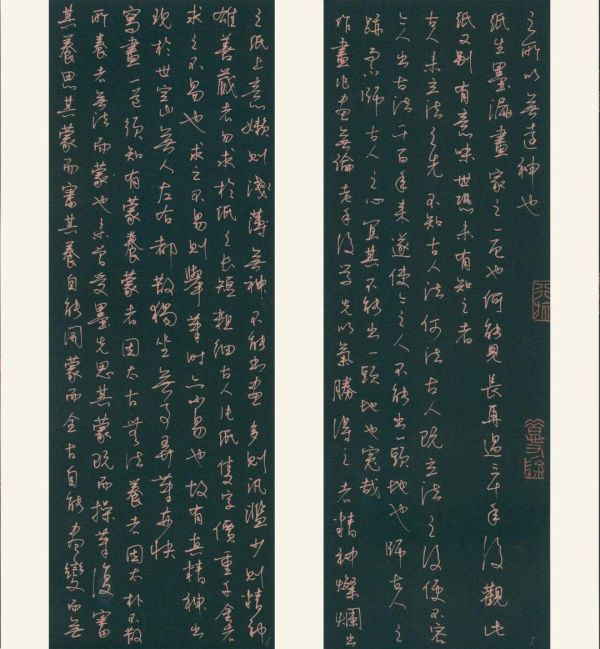 之所以無遺神也
紙生墨漏畫家之一厄也何能見長再過三千年後觀此
紙又别有意味世恐未有知之者
古人未立法之先不知古人法何法古人既立法之後便不容
今人出古法千百年來遂使今之人不能出一頭地也師古人之
跡不師古人之心宜其不能出一頭地也冤哉
作畫作書無倫老手後學先以氣勝得之者精神燦爛出
之紙上意懶則淺薄無神不能書畫多則汎濫少則精神
雄善藏者勿求於紙之長短粗細古人片紙隻字價重千金者
求之不易也求之不易則舉筆時亦不易也故有真精神出
現於世空山無人左右都散獨坐無事尋筆快
寫畫一道須知有蒙養蒙者因太古無法養者因太朴不散
所養者無法而蒙也未曾受墨先思其蒙既而操筆復審
其養思其蒙而審其養自能開蒙而全古自能盡變而無